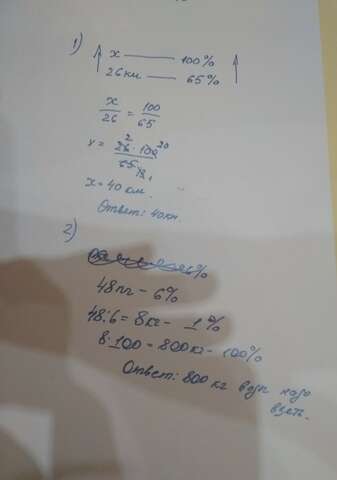 1)
x — 100%
26км — 65%
x/26 = 100/65
x = 26 · 100 / 65
x = 40 км.
Ответ: 40км.
2)
48кг – 6%
48:6 = 8кг – 1%
8·100 = 800кг – 100%
Ответ: 800 кг воды надо
взять.